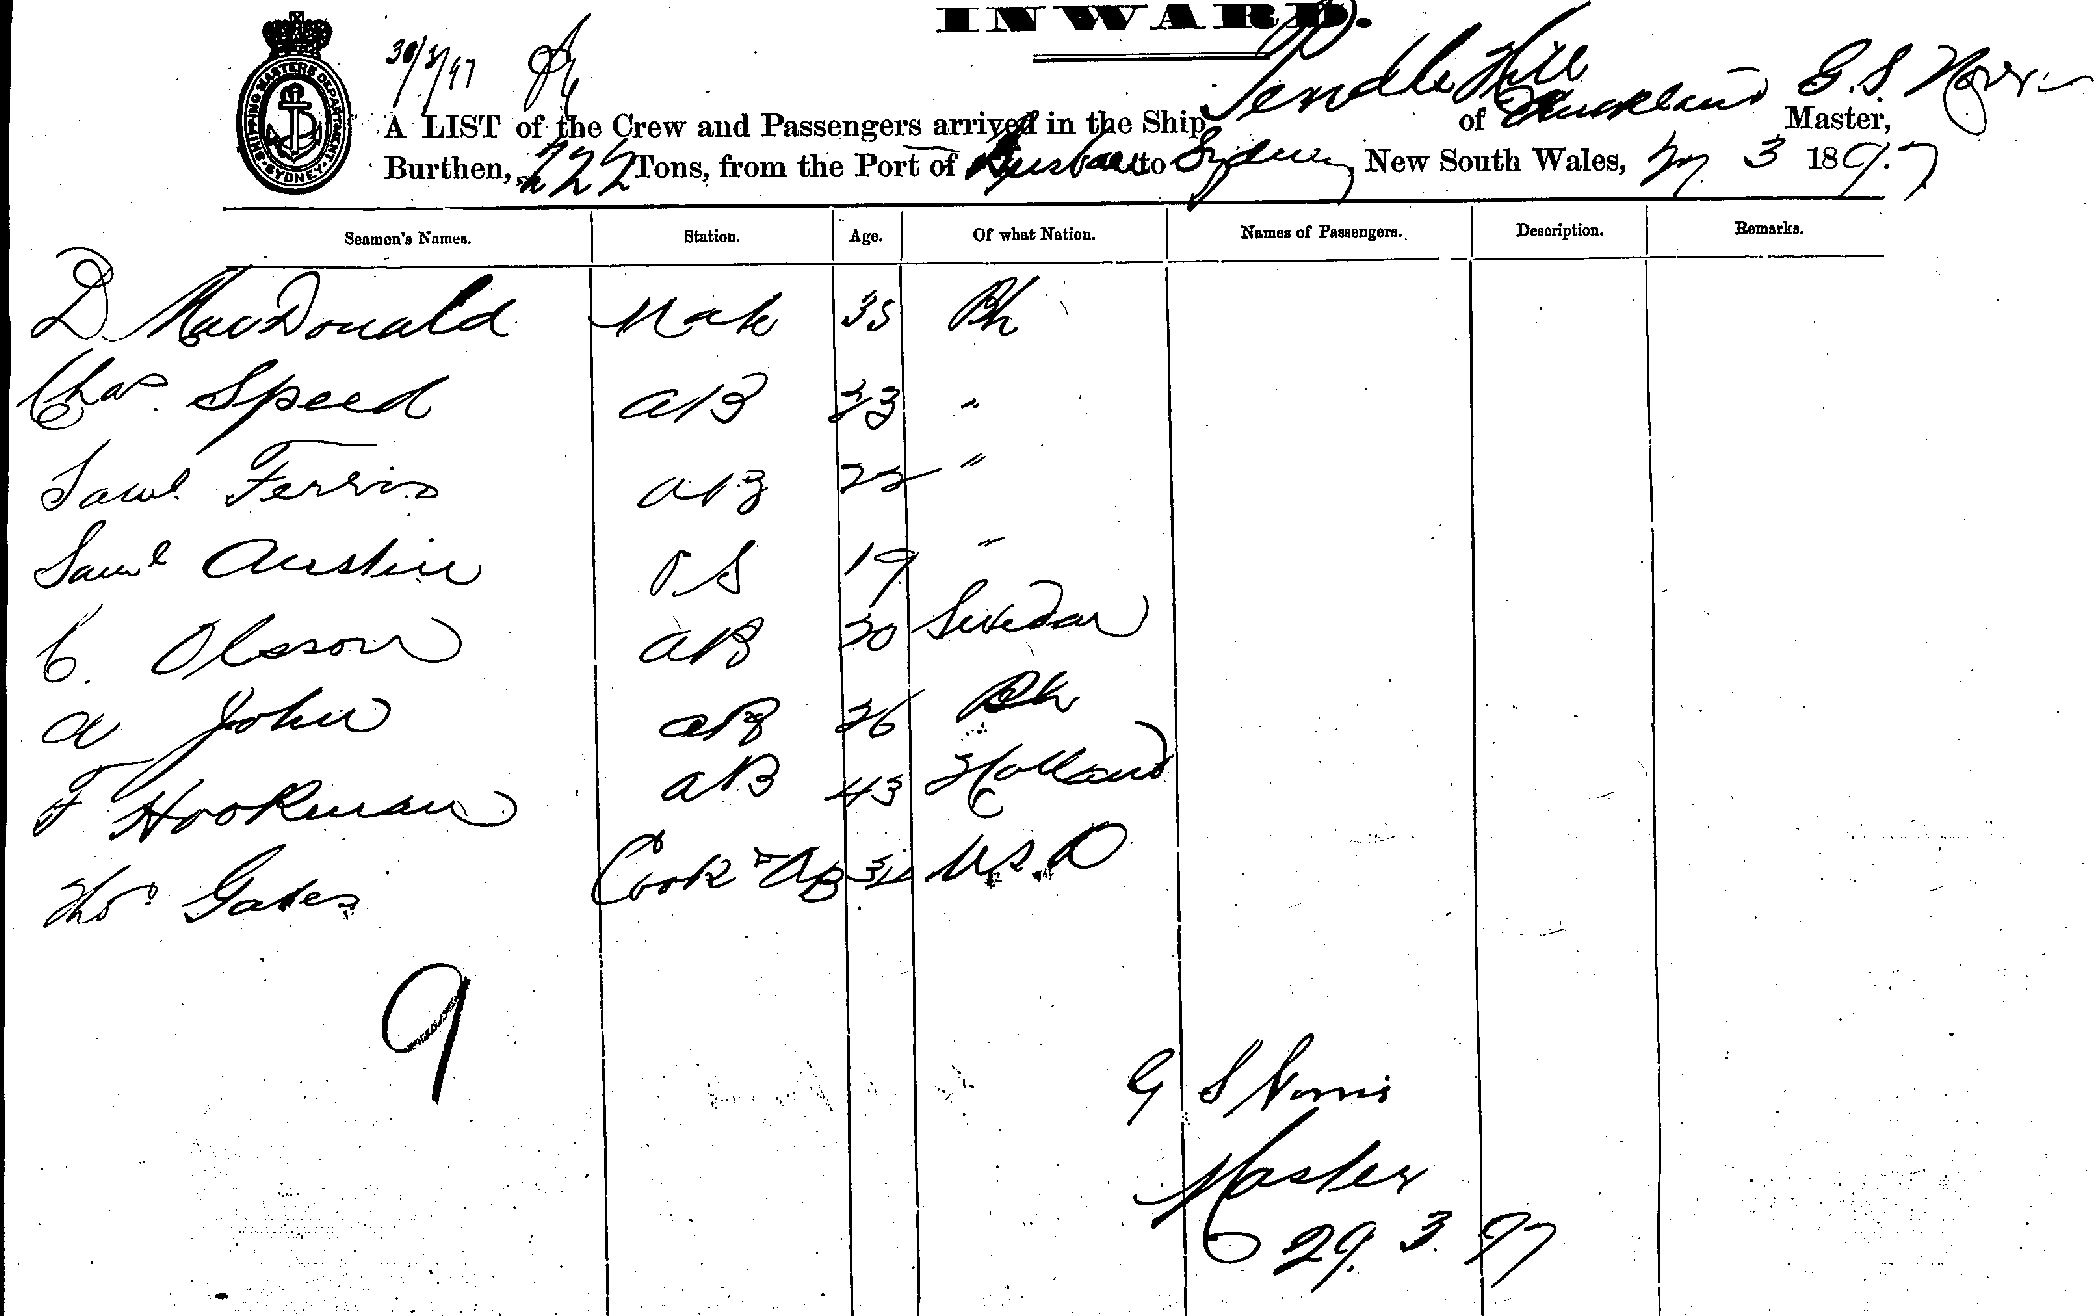 INWARD.
30/3/97
SHIPPING MASTERS DEPARTMENT SYDNEY
A LIST of the Crew and Passengers arrived in the Ship Pendle Hill of Auckland G. S. Norris Master,
Burthen, 222 Tons, from the Port of Brisbane to Sydney New South Wales, 3 1897
Seamen's Names. Station. Age. Of what Nation. Names of Passengers. Description. Remarks.
D MacDonald Mate 35 Bh
Chas. Speed AB 33 "
Saml Ferris AB 22 "
Saml Austin OS 19 "
C. Olsson AB 30 Swedan
A John AB 26 Bh
F Hookman AB 43 Holland
Thos Gates Cook & AB U.S.A
9
G S Norris
Master
29. 3. 97